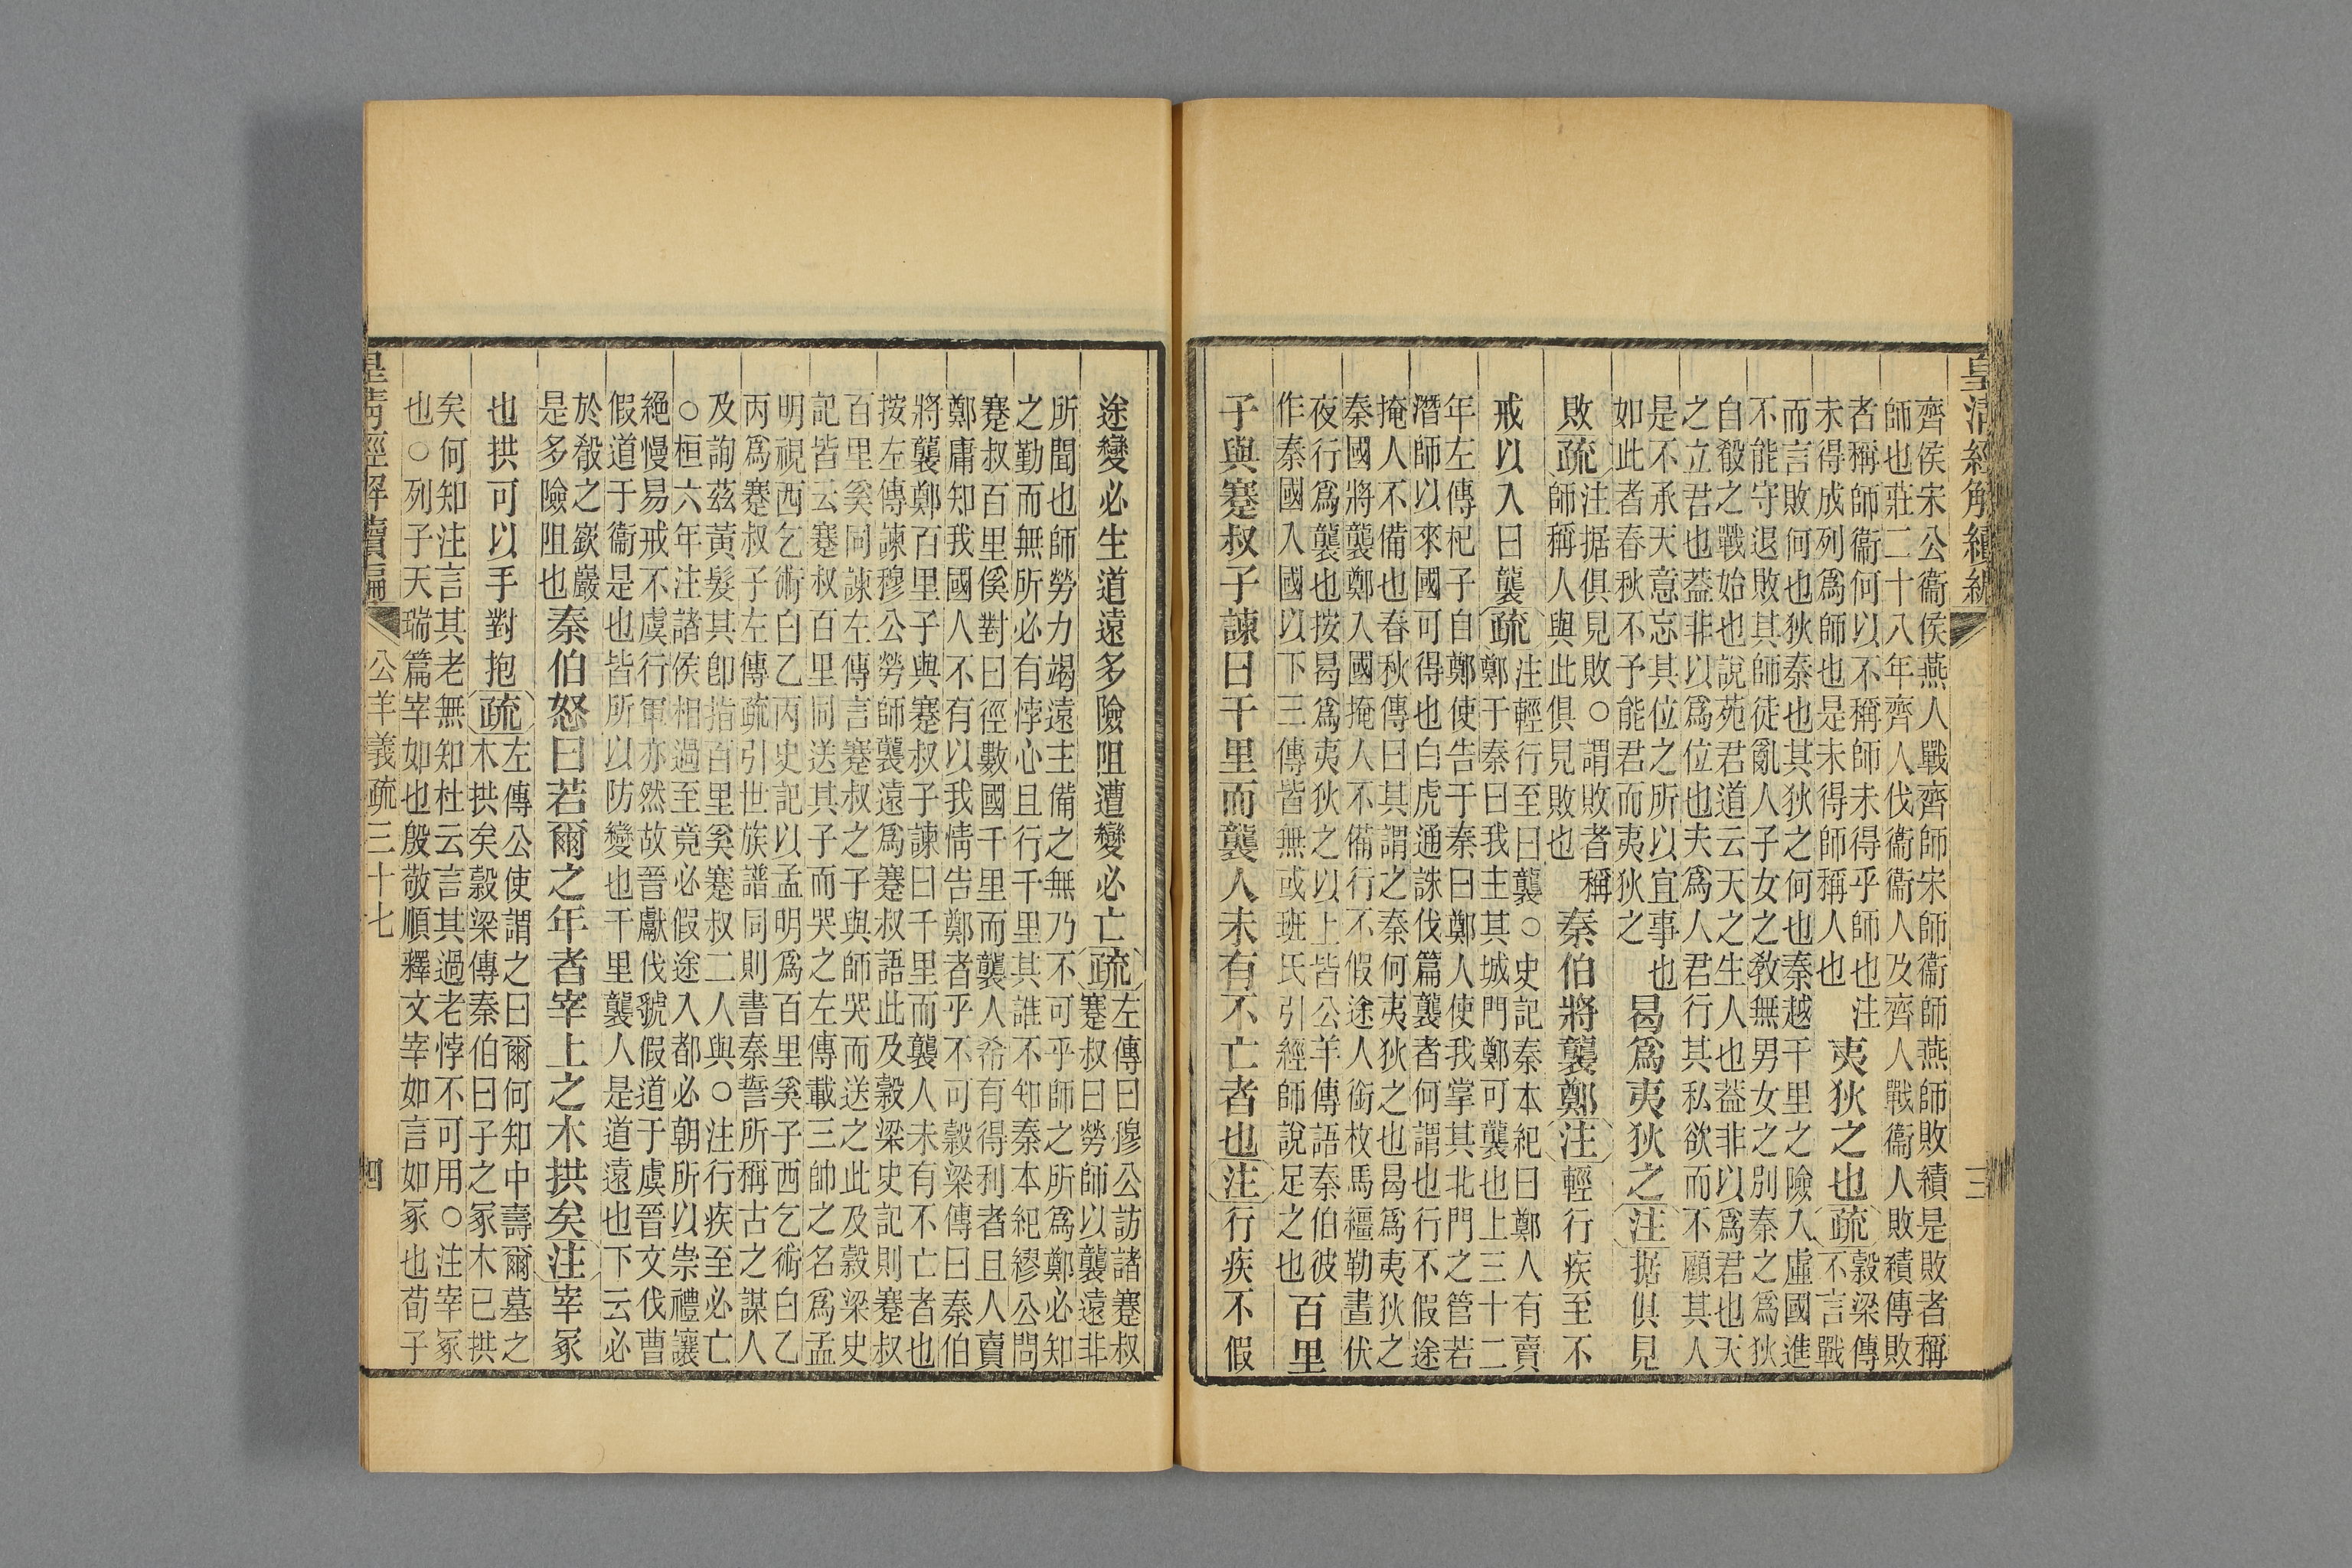 皇清經解續編 三
齊侯宋公衞侯燕人戰齊師宋師衞師燕師敗績是敗者稱
師也莊二十八年齊人伐衞衞人及齊人戰衞人敗績傳敗
者稱師衞何以不稱師未得乎師也注
未得成列爲師也是未得師稱人也
夷狄之也疏
穀梁傳
不言戰
而言敗何也狄秦也其狄之何也秦越千里之險入虛國進
不能守退敗其師徒亂人子女之敎無男女之別秦之爲狄
自殽之戰始也說苑君道云天之生人也葢非以爲君也天
之立君也葢非以爲位也夫爲人君行其私欲而不顧其人
是不承天意忘其位之所以宜事也
如此者春秋不予能君而夷狄之
曷爲夷狄之注据俱見
敗疏
注据俱見敗○謂敗者稱
師稱人與此俱見敗也
秦伯將襲鄭注輕行疾至不
戒以入曰襲疏
注輕行至曰襲○史記秦本紀曰鄭人有賣
鄭于秦曰我主其城門鄭可襲也上三十二
年左傳杞子自鄭使告于秦曰鄭人使我掌其北門之管若
潛師以來國可得也白虎通誅伐篇襲者何謂也行不假途
掩人不備也春秋傳曰其謂之秦何夷狄之也曷爲夷狄之
秦國將襲鄭入國掩人不備行不假途人銜枚馬繮勒晝伏
夜行爲襲也按曷爲夷狄之以上皆公羊傳語秦伯彼
作秦國入國以下三傳皆無或班氏引經師說足之也
百里
子與蹇叔子諫曰千里而襲人未有不亡者也注行疾不假
途變必生道遠多險阻遭變必亡疏
左傳曰穆公訪諸蹇叔
蹇叔曰勞師以襲遠非
所聞也師勞力竭遠主備之無乃不可乎師之所爲鄭必知
之勤而無所必有悖心且行千里其誰不知秦本紀繆公問
蹇叔百里傒對曰徑數國千里而襲人希有得利者且人賣
鄭庸知我國人不有以我情告鄭者乎不可穀梁傳曰秦伯
將襲鄭百里子與蹇叔子諫曰千里而襲人未有不亡者也
按左傳諫穆公勞師襲遠爲蹇叔語此及穀梁史記則蹇叔
百里奚同諫左傳言蹇叔之子與師哭而送之此及穀梁史
記皆云蹇叔百里同送其子而哭之左傳載三帥之名爲孟
明視西乞術白乙丙史記以孟明爲百里奚子西乞術白乙
丙爲蹇叔子左傳疏引世族譜同則書秦誓所稱古之謀人
及詢茲黃髮其卽指百里奚蹇叔二人與○注行疾至必亡
○桓六年注諸侯相過至竟必假途入都必朝所以崇禮讓
絕慢易戒不虞行軍亦然故晉獻伐虢假道于虞晉文伐曹
假道于衞是也皆所以防變也千里襲人是道遠也下云必
於殽之嶔巖
是多險阻也
秦伯怒曰若爾之年者宰上之木拱矣注宰冢
也拱可以手對抱疏
左傳公使謂之曰爾何知中壽爾墓之
木拱矣穀梁傳秦伯曰子之冢木已拱
矣何知注言其老無知杜云言其過老悖不可用○注宰冢
也○列子天瑞篇宰如也殷敬順釋文宰如言如冢也荀子
皇清經解續編 公羊義疏三十七 四